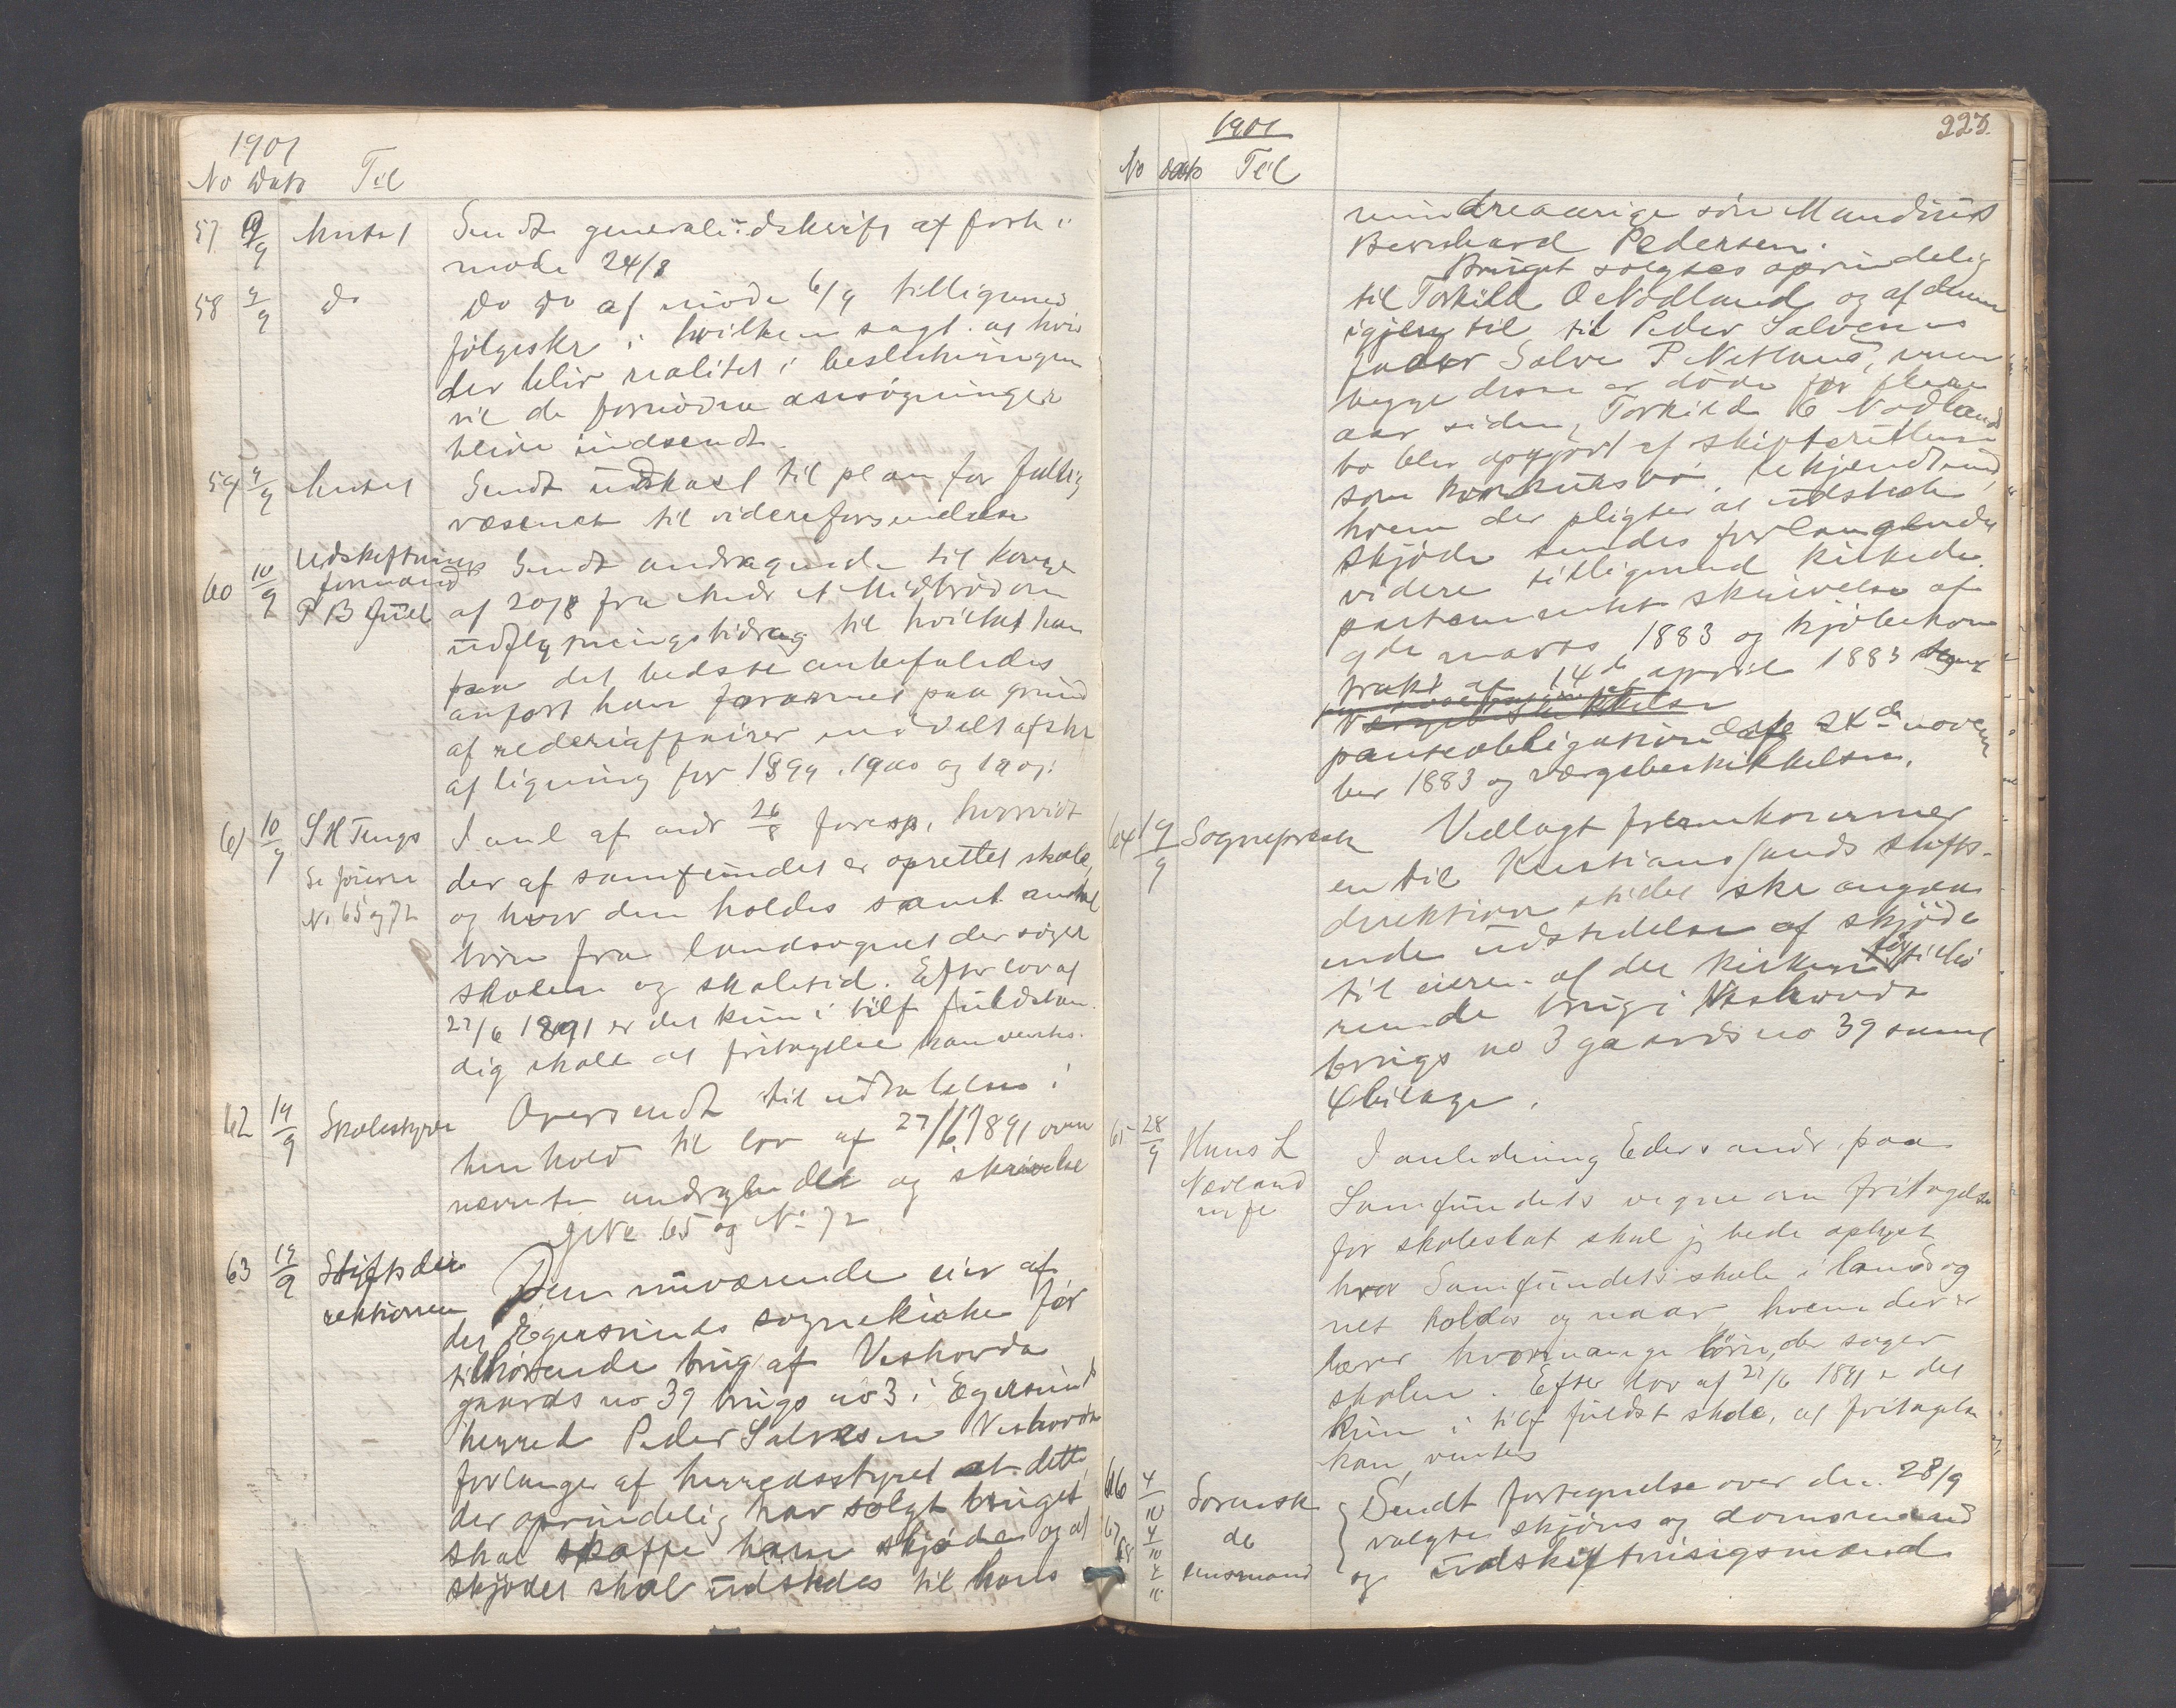 1901
No Dato Til
57 9/9 Amtet Sendt generaludskrift af forh i
møde 24/8
58 9/9 do Do Do af møde 6/9 tilligemed
følgeskr i hvilken sagt at hvis
der blir realitet i beslutningen
vil de fornødne ansøgninger
blive indsendt.
59 9/9 Amtet Sendt udkast til plan for fattig
væsenet til videreforsendelse
60 10/9 Udskiftnings
formand
P B Juel
Sendt andragende til Konge
af 20/8 fra Andr A Midbrød om
udflytningsbidrag til hvilket han
paa det bedste anbefaledes
anført han forarmet paa grund
af rederiaffairer
af ligning for 1899, 1900 og 1901.
61 10/9 S H Tengs
Se
No 65 og 72
I anl af andr 26/8 foresp, hvorvidt
der af samfundet er oprettet skole,
og hvor den holdes samt antal
børn fra landsognet der søger
skolen og skoletid. Efter lov af
27/6 1891 er det kun i tilf fuldstæn
dig skole at fritagelse kan ventes.
62 14/9 Skolestyret Oversendt til udtalelse i
henhold til lov af 27/6 1891 oven
nævnte andragende og skrivelse
65 og No 72
63 19/9 Stiftsdi
rektionen
Den nuværende eier af
det Egersunds sognekirke før
tilhørende brug af Veshovda
gaards no 39 brugs no 3 i Egersund
herred Peder Salvesen Veshovda
forlanger af herredsstyret at dette
der oprindelig har solgt bruget
skal skaffe ham skjøde og at
skjødet skal udstedes til hans
1901
223.
No dato Til
mindreaarige søn Mandius
Bernhard Pedersen.
Bruget solgtes oprindelig
til Torkild O Nødland og af denne
igjen til til Peder Salvesens
fader Salve P Netland, men
begge disse er døde for flere
aar siden, Torkild O Nødlands
bo blev opgjort af skifteretten
som konkursbo. Ukjendt med,
hvem der pligter at udstede
skjøde sendes forlangendet
videre tilligemed Kirkede
partementets skrivelse af
9de marts 1883 og kjøbekon
trakt af 14de april 1883
panteobligation af 24de novem
ber 1883 og værgebeskikkelsen.
64 19/9 Sognepresten Vedlagt fremkommer
en til Kristianssands stifts-
direktion stilet skr angaa
ende udstedelse af skjøde
til eieren af det kirken før tilhø
rende brug i Veshovda
brugs no 3 gaards no 39 samt
4 bilage.
65 28/9 Hans L
Nævland
I anledning Eders andr. paa
Samfundets vegne om fritagelse
for skoleskat skal jeg bede oplyst
hvor Samfundets skole i landsog
net holdes og naar, hvem der er
lærer hvormange børn, der søger
skolen. Efter lov af 27/6 1891 er det
kun i tilf fuldst skole, at fritagelse
kan ventes
66 4/10 Sorensk
67 4/10 do
68 4/10 Lensmand
Sendt fortegnelse over den 28/9
valgte skjøns og domsmænd
og udskiftningsmænd